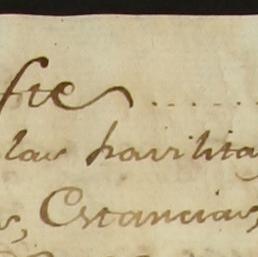 ste ........
las havilita
s, Estancias,